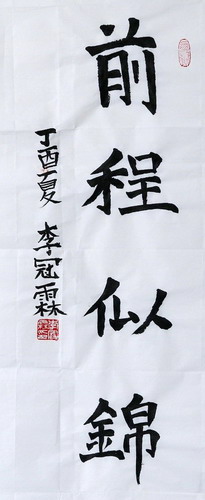 前程似錦
丁酉夏 李冠霖